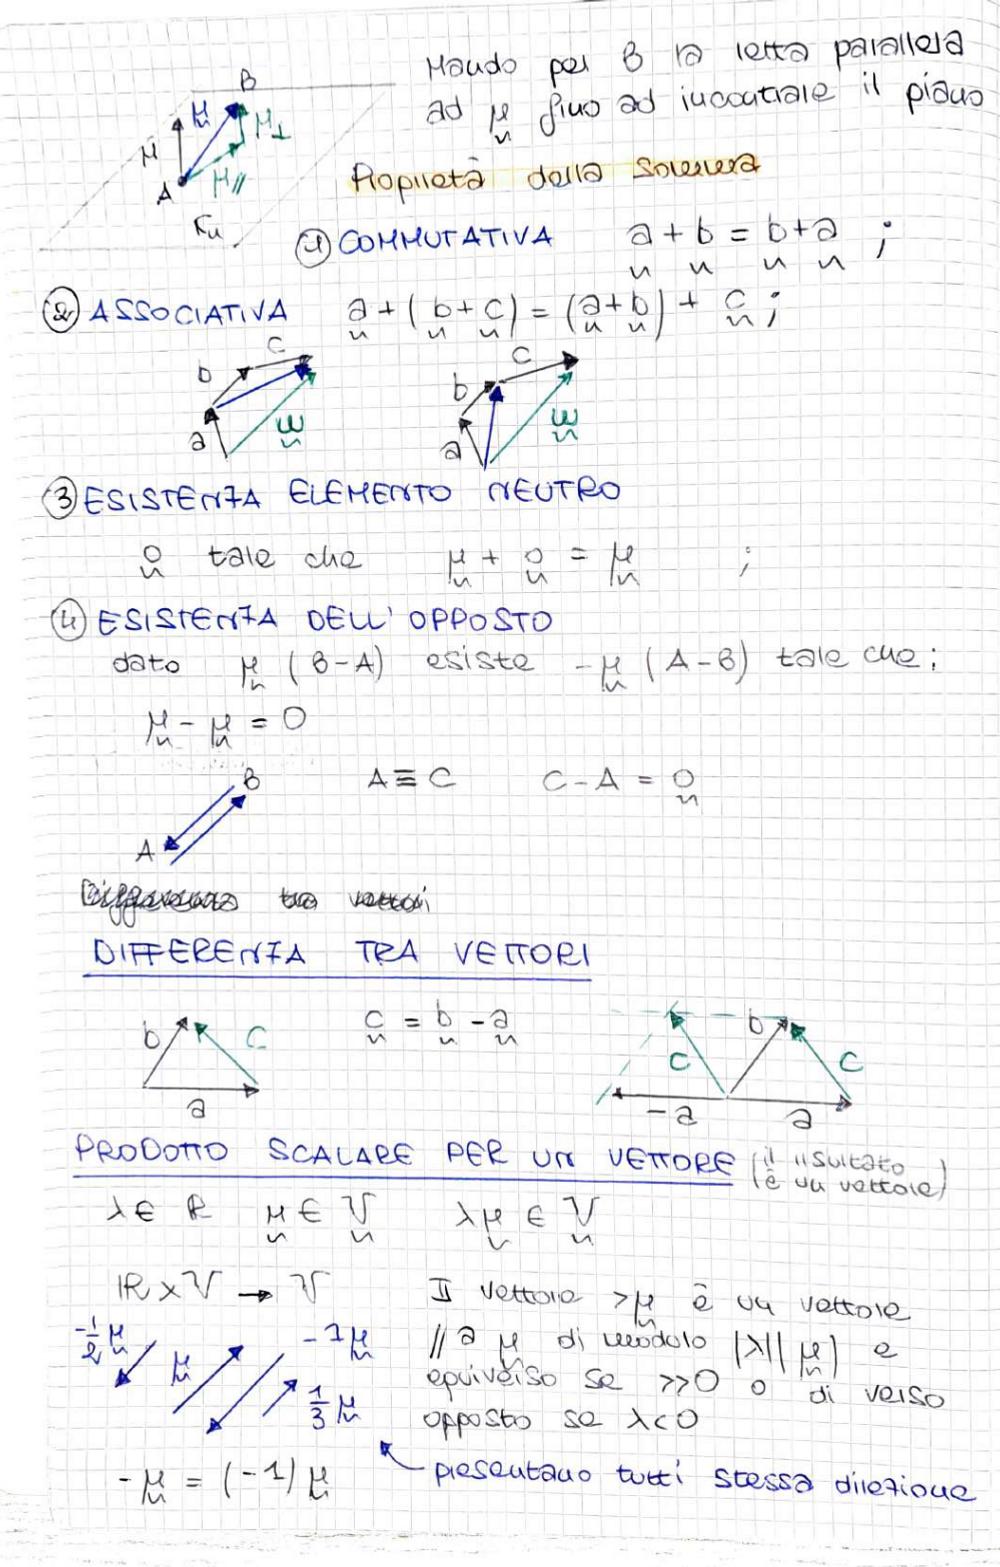 Mando per B la retta parallela
ad μ fino ad incontrare il piano
B
μ
μ
μ⊥
A
μ//
Proprietà della somma
① COMMUTATIVA a + b = b + a ;
② ASSOCIATIVA a + (b + c) = (a + b) + c ;
b c
a w
b c
a w
③ ESISTENZA ELEMENTO NEUTRO
0 tale che μ + 0 = μ ;
④ ESISTENZA DELL'OPPOSTO
dato μ (B-A) esiste -μ (A-B) tale che:
μ - μ = 0
B
A ≡ C C - A = 0
A
Differenza tra vettori
DIFFERENZA TRA VETTORI
b c
a
c = b - a
c b c
-a a
PRODOTTO SCALARE PER UN VETTORE (il risultato
è un vettore)
λ ∈ R μ ∈ V λμ ∈ V
ℝ x V → V
Il vettore λμ è un vettore
// a μ di modulo |λ||μ| e
equiverso se λ>0 o di verso
opposto se λ<0
-1/2 μ
μ
-1μ
1/3 μ
-μ = (-1) μ
presentano tutti stessa direzione